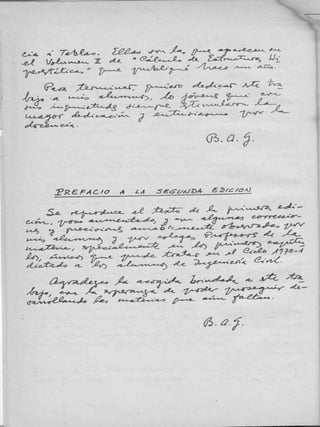 cia a Tablas. Ellas son las que aparecen en
el Volumen II de "Cálculo de Estructuras Hi-
perestáticas" que publiqué hace un año.
Para terminar, quiero dedicar este tra-
bajo a mis alumnos, los jóvenes que con
sus inquietudes siempre estimularon la
mayor dedicación y entusiasmo por la
docencia.
B. A. G.
PREFACIO A LA SEGUNDA EDICION
Se reproduce el texto de la primera edi-
ción, poco aumentado, y con algunas correccio-
nes y precisiones amablemente observadas por
mis alumnos y por colegas Profesores de la
materia, especialmente en los primeros capítu-
los, únicos que pude tratar en el Ciclo 1970-1
dictado a los alumnos de Ingeniería Civil.
Agradezco la acogida brindada a este tra-
bajo, con la esperanza de poder proseguir de-
sarrollando las materias que aún faltan.
B. A. G.